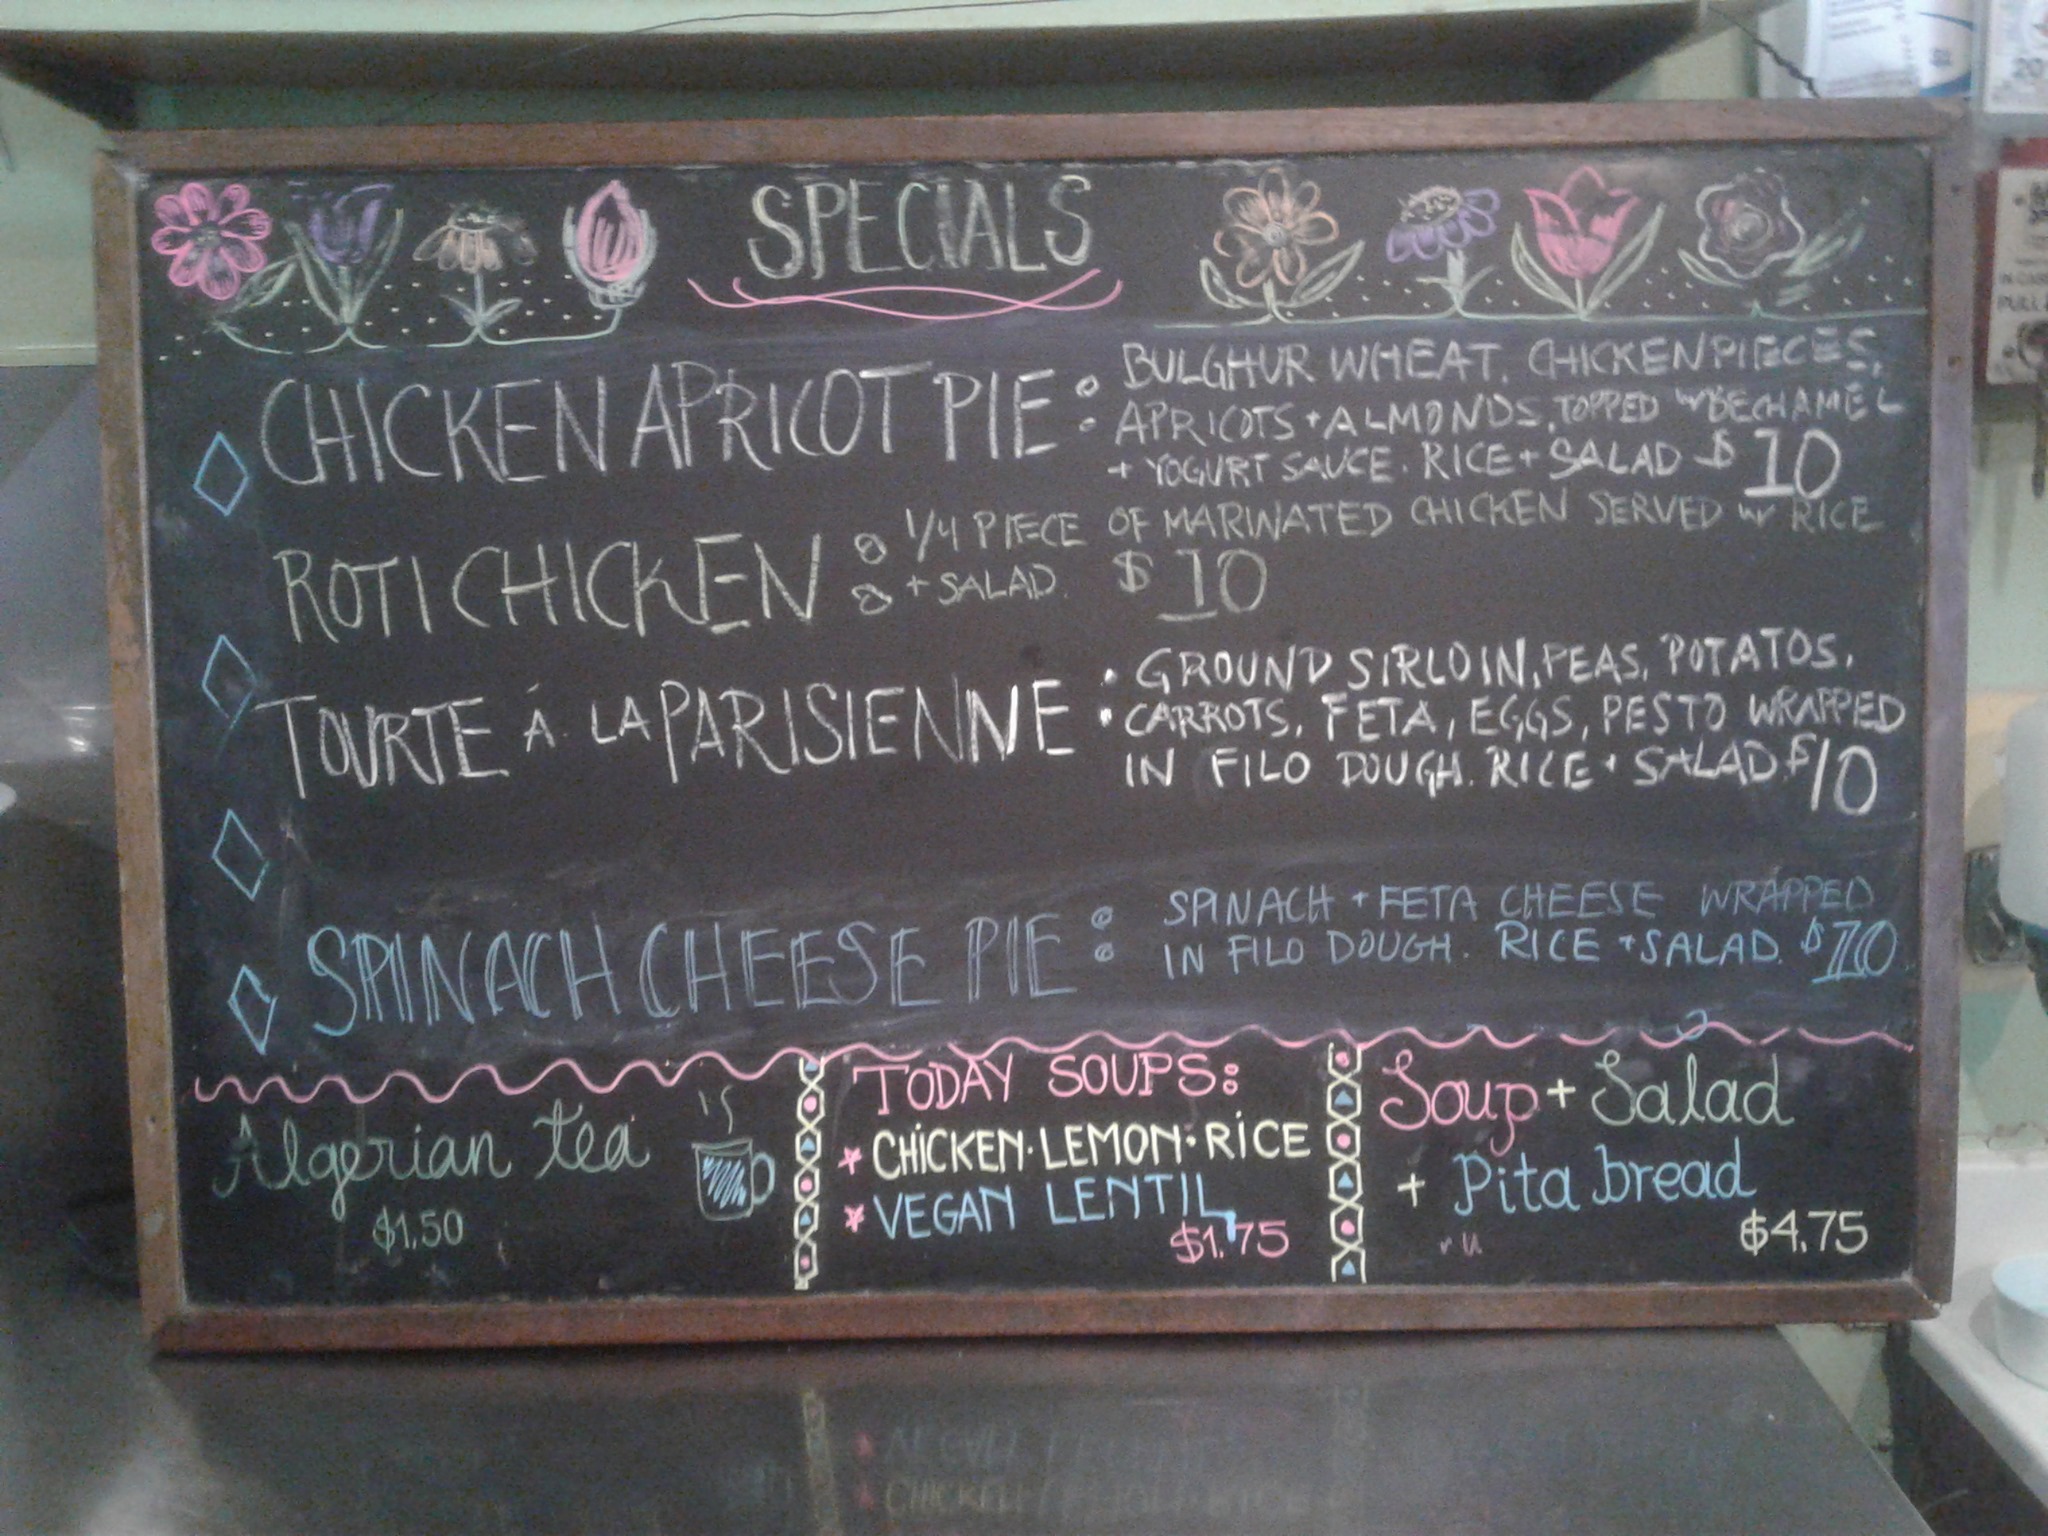 SPECIALS
CHICKEN APRICOT PIE:
BULGHUR WHEAT, CHICKEN PIECES,
APRICOTS + ALMONDS, TOPPED w BECHAMEL
+ YOGURT SAUCE. RICE + SALAD $10
ROTI CHICKEN:
1/4 PIECE OF MARINATED CHICKEN SERVED w RICE
+ SALAD. $10
TOURTE Á LA PARISIENNE:
GROUND SIRLOIN, PEAS, POTATOS,
CARROTS, FETA, EGGS, PESTO WRAPPED
IN FILO DOUGH. RICE + SALAD $10
SPINACH CHEESE PIE:
SPINACH + FETA CHEESE WRAPPED
IN FILO DOUGH. RICE + SALAD. $10
Algerian tea
$1.50
TODAY SOUPS:
CHICKEN·LEMON·RICE
VEGAN LENTIL
$1.75
Soup + Salad
+ Pita bread
$4.75